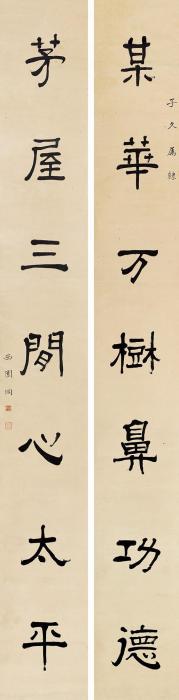 子久属隸
某華万樹鼻功德
茅屋三閒心太平
西園